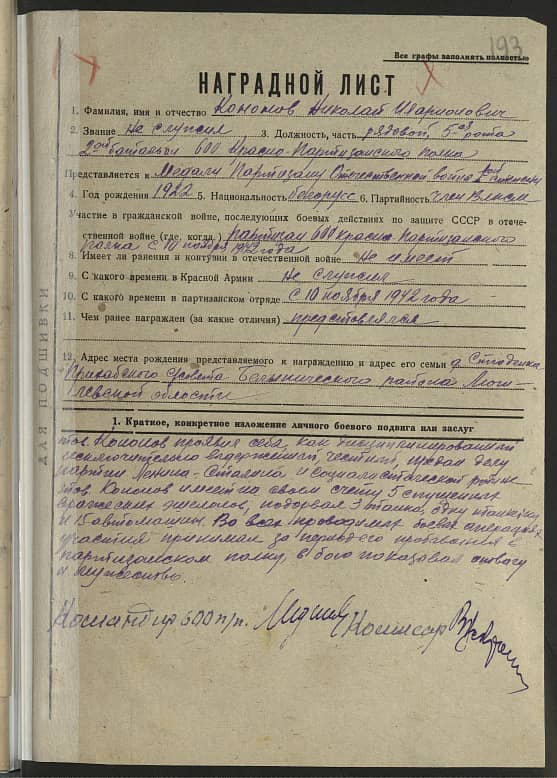 193
Все графы заполнять полностью
НАГРАДНОЙ ЛИСТ
1. Фамилия, имя и отчество Кононов Николай Иларионович
2. Звание Не служил 3. Должность, часть рядовой, 5-ой рота
2ой батальон 600 Красно-Партизанского полка
Представляется к Медали Партизану Отечественной войне степени
4. Год рождения 1922 5. Национальность белорусс 6. Партийность член ВЛКСМ
Участие в гражданской войне, последующих боевых действиях по защите СССР в отече-
ственной войне (где, когда) партизан 600 красно Партизанского
полка с 10 ноября 1942 года
8. Имеет ли ранения и контузии в отечественной войне Не имеет
9. С какого времени в Красной Армии Не служил
10. С какого времени в партизанском отряде с 10 ноября 1942 года
11. Чем ранее награжден (за какие отличия) представлялся
12. Адрес места рождения представляемого к награждению и адрес его семьи д.
совета Белыничского района Моги-
левской области
ДЛЯ ПОДШИВКИ
1. Краткое, конкретное изложение личного боевого подвига или заслуг
тов. Кононов проявил себя, как дисциплинированный
исключительно выдержанный, честный, предан делу
партии Ленина-Сталина и социалистической родине
тов. Кононов имеет на своем счету 5 спущенных
вражеских эшелонов, подорвал 3 танка, одну танкетку
и 15 автомашин. Во всех проводимых боевых операциях
участия принимал за период его пребывания в
партизанском полку, в бою показывал отвагу
и мужество.
Командир 600 п/п. Комиссар